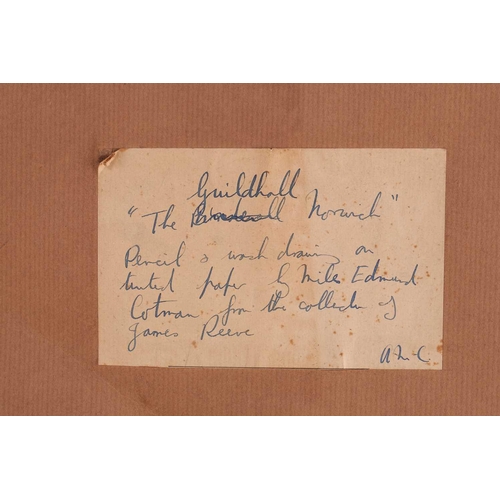 Guildhall
"The Bridewell Norwich"
Pencil & wash drawing on
tinted paper by Mile Edmund
Cotman from the collection of
James Reeve
A.M.C.